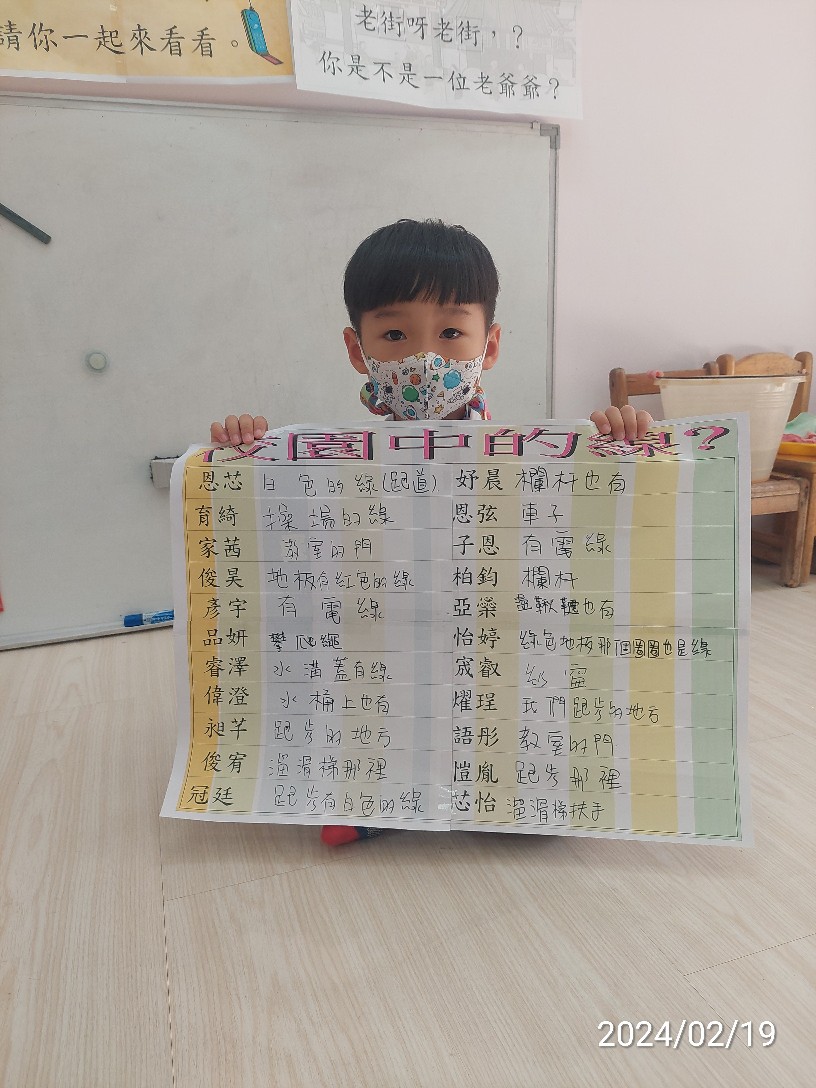 請你一起來看看。
老街呀老街，？
你是不是一位老爺爺？
校園中的線？
恩芯 白色的線(跑道)
育綺 操場的線
家茜 教室的門
俊昊 地板有紅色的線
彥宇 有電線
品妍 攀爬繩
睿澤 水溝蓋有線
偉澄 水桶上也有
昶芊 跑步的地方
俊宥 溜滑梯那裡
冠廷 跑步有白色的線
妤晨 欄杆也有
恩弦 車子
子恩 有電線
柏鈞 欄杆
亞欒 盪鞦韆也有
怡婷 綠色地板那個圈圈也是線
宬叡 紗窗
燿珵 我們跑步的地方
語彤 教室的門
愷胤 跑步那裡
芯怡 溜滑梯扶手
2024/02/19